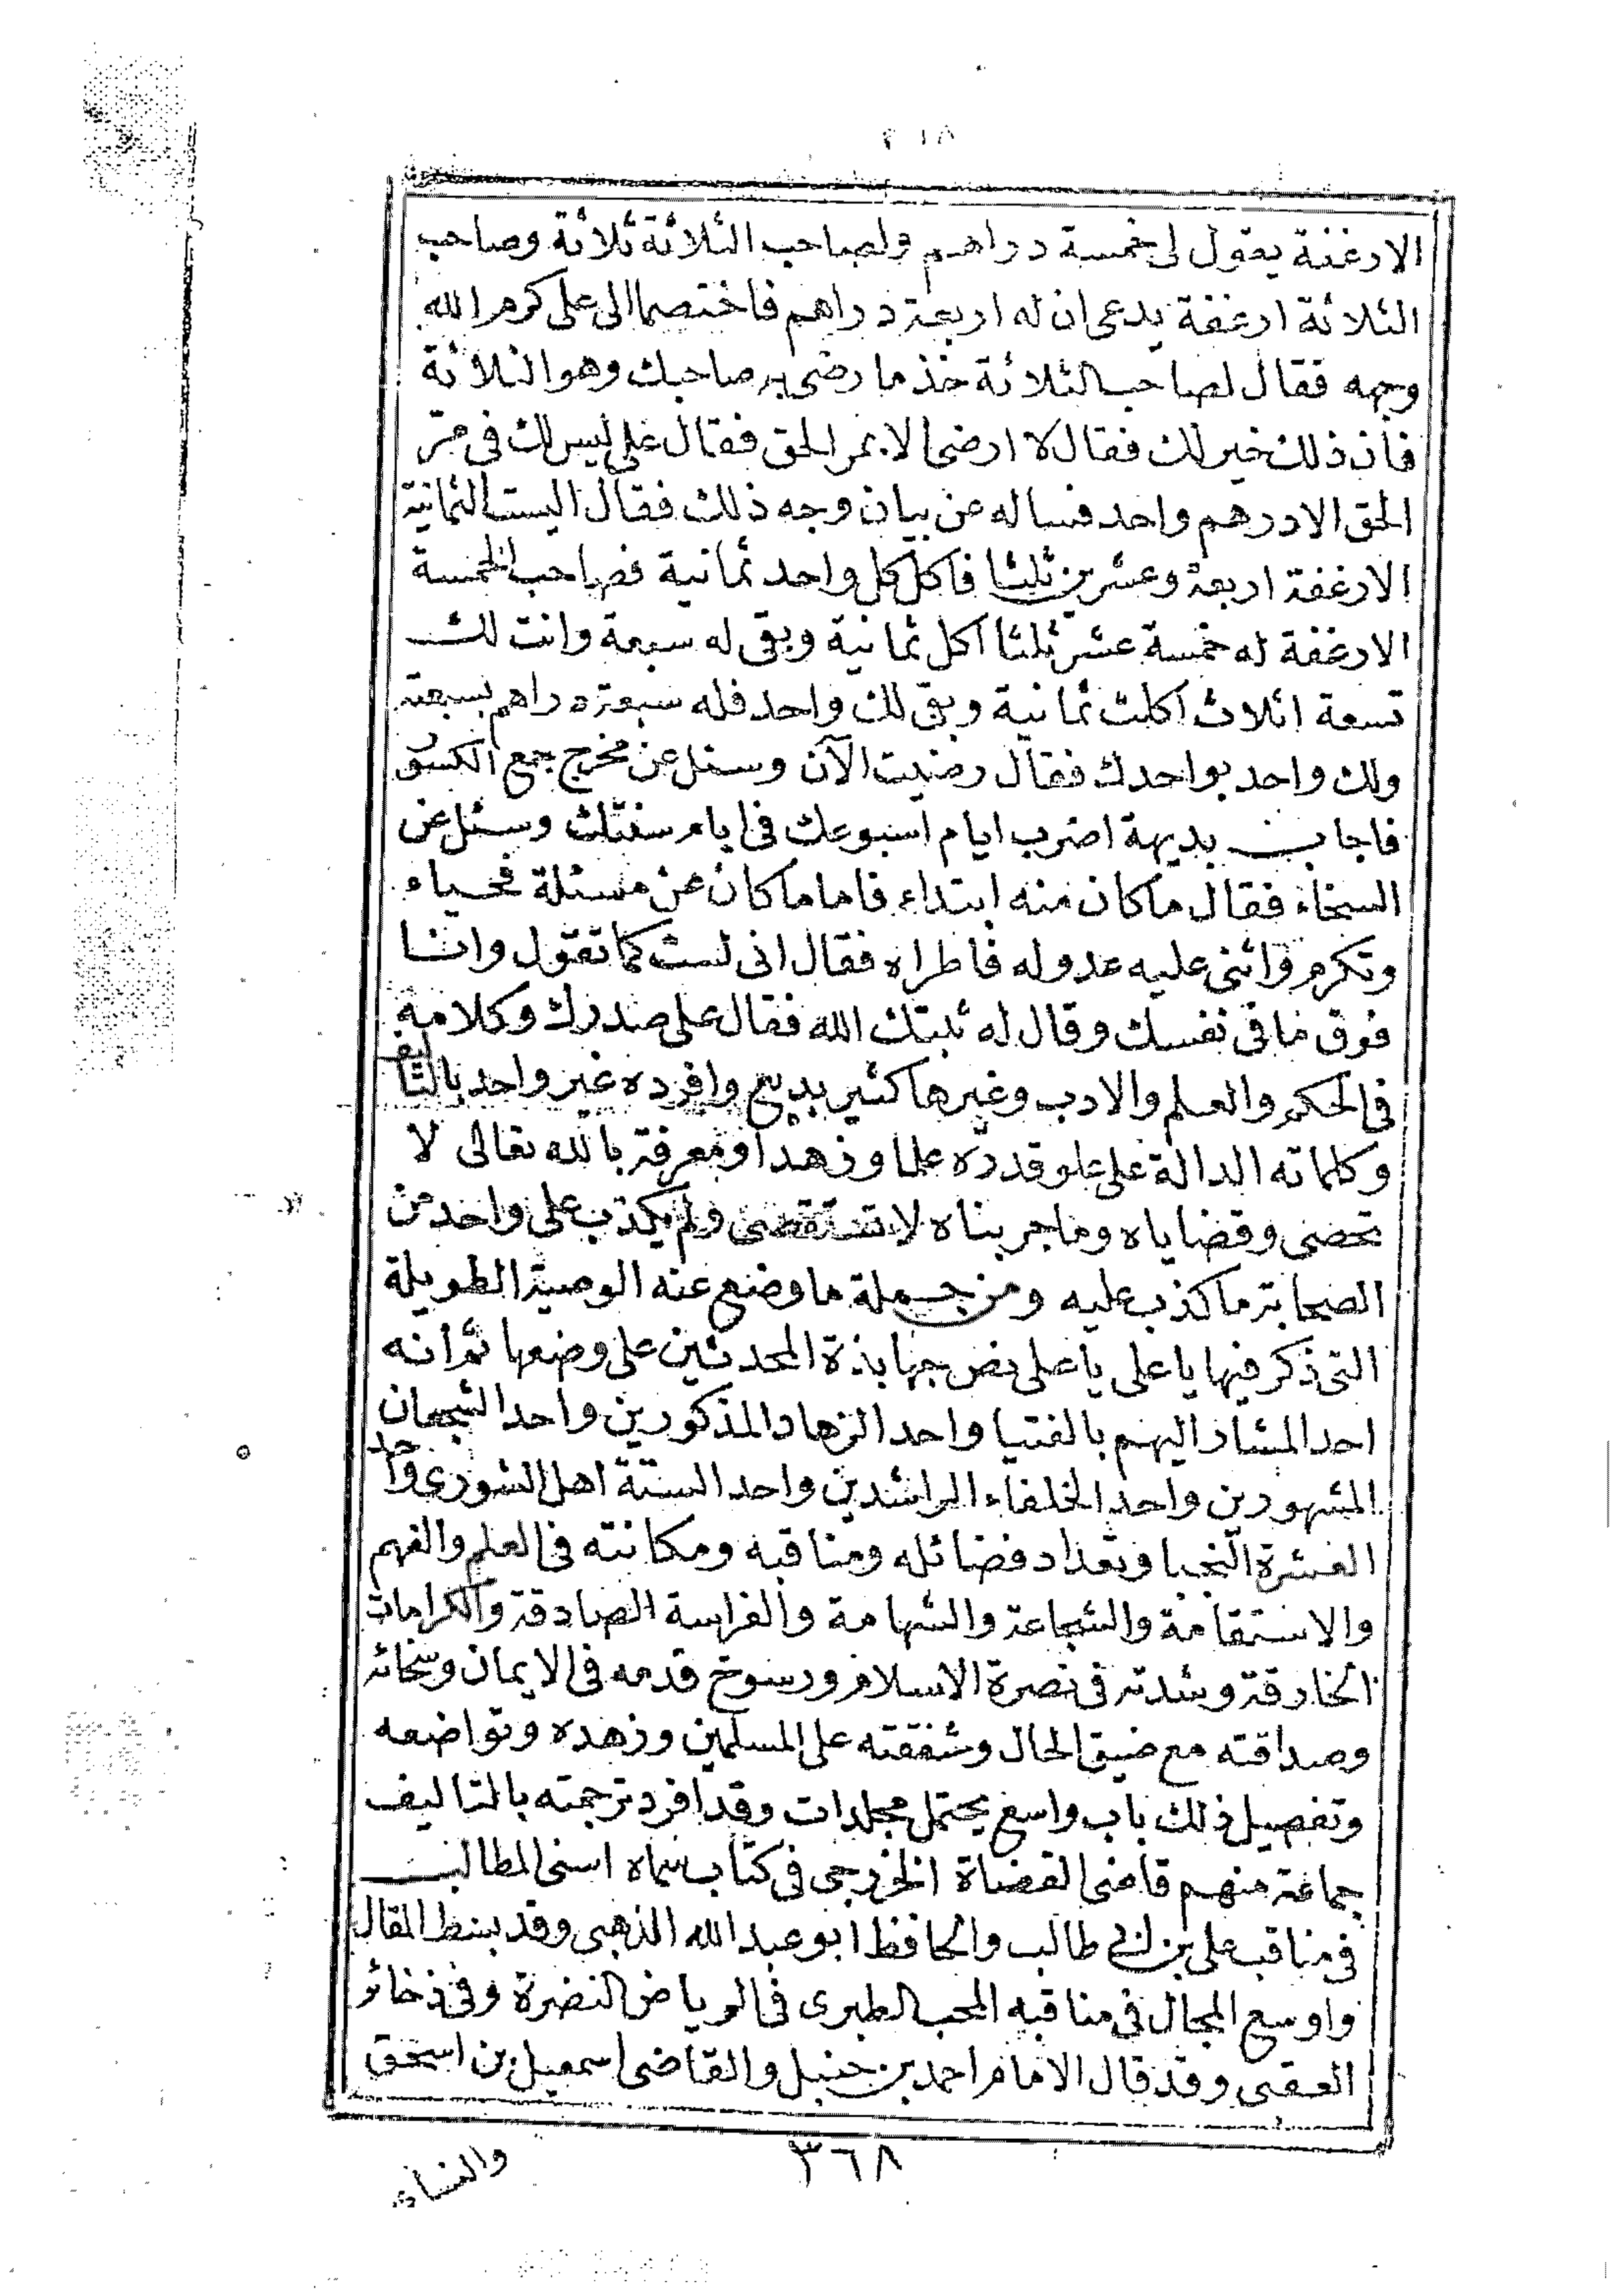 ٣٦٨
الارغفة يقول لى خمسة دراهم ولصاحب الثلاثة ثلاثة وصاحب
الثلاثة ارغفة يدعى ان له اربعة دراهم فاختصما الى على كرم الله
وجهه فقال لصاحب الثلاثة خذ ما رضى به صاحبك وهو الثلاثة
فان ذلك خير لك فقال لا ارضى الا بمر الحق فقال على ليس لك فى مر
الحق الا درهم واحد فساله عن بيان وجه ذلك فقال اليست الثمانية
الارغفة اربعة وعشرين ثلثا فاكل كل واحد ثمانية فصاحب الخمسة
الارغفة له خمسة عشر ثلثا اكل ثمانية وبقى له سبعة وانت لك
تسعة اثلاث اكلت ثمانية وبقى لك واحد فله سبعة دراهم بسبعته
ولك واحد بواحدك فقال رضيت الآن وسئل عن مخرج جمع الكسور
فاجاب بديهة اضرب ايام اسبوعك فى ايام سنتك وسئل عن
السخاء فقال ما كان منه ابتداء فاما ما كان عن مسئلة فحياء
وتكرم واثنى عليه عدو له فاطراه فقال انى لست كما تقول وانا
فوق ما فى نفسك وقال له ثبتك الله فقال على صدرك وكلامه
فى الحكم والعلم والادب وغيرها كثير بديع وافرده غير واحد بالتأليف
وكلماته الدالة على علو قدره علما وزهدا ومعرفة بالله تعالى لا
تحصى وقضاياه وماجرياناه لا تستقصى ولم يكذب على واحد من
الصحابة ما كذب عليه ومن جملة ما وضع عنه الوصية الطويلة
التى ذكر فيها يا على يا على نص جهابذة المحدثين على وضعها ثم انه
احد المشار اليهم بالفتيا واحد الزهاد المذكورين واحد الشجعان
المشهورين واحد الخلفاء الراشدين واحد الستة اهل الشورى واحد
العشرة النجبا وتعداد فضائله ومناقبه ومكانته فى العلم والفهم
والاستقامة والشجاعة والشهامة والفراسة الصادقة والكرامات
الخارقة وشدته فى نصرة الاسلام ورسوخ قدمه فى الايمان وسخائه
وصداقته مع ضيق الحال وشفقته على المسلمين وزهده وتواضعه
وتفصيل ذلك باب واسع يحتمل مجلدات وقد افرد ترجمته بالتاليف
جماعة منهم قاضى القضاة الخزرجى فى كتاب سماه اسنى المطالب
فى مناقب على بن ابى طالب والحافظ ابو عبد الله الذهبى وقد بسط المقال
واوسع المجال فى مناقبه المحب الطبرى فى الرياض النضرة وفى ذخائر
العقبى وقد قال الامام احمد بن حنبل والقاضى اسمعيل بن اسحق
والنساء
٣٦٨